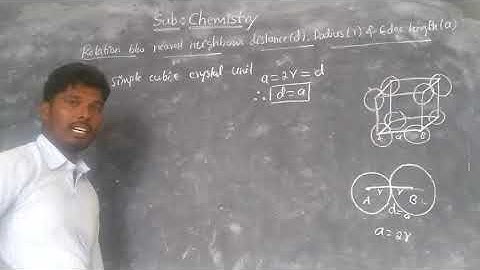 Sub: Chemistry
Relation b/w nearest neighbour distance (d), Radius (r) & Edge length (a)
Simple cubic crystal unit a = 2r = d
∴ d = a
A a B
A r r B
d = a
a = 2r